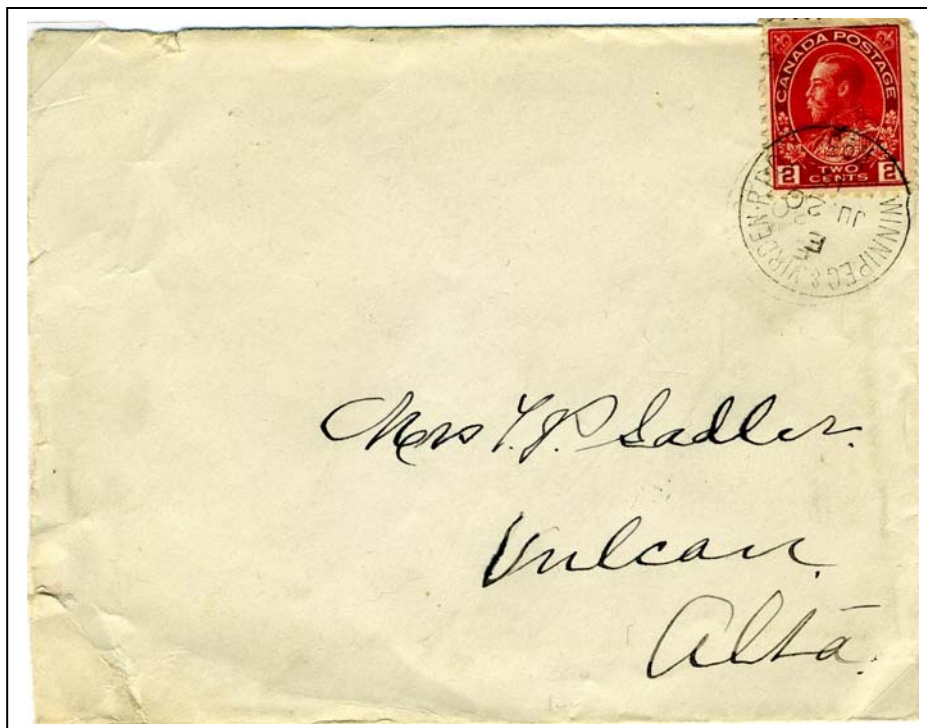 CANADA POSTAGE
2 TWO CENTS 2
WINNIPEG & VIRDEN R.P.O.
E
JU
Mrs T.P. Sadler.
Vulcan,
Alta.